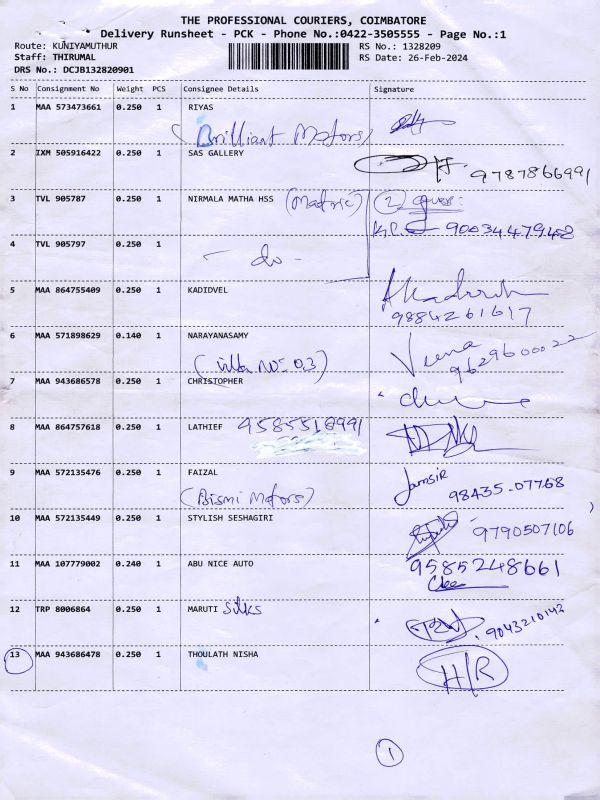 THE PROFESSIONAL COURIERS, COIMBATORE
Delivery Runsheet - PCK - Phone No.:0422-3505555 - Page No.:1
Route: KUNIYAMUTHUR RS No.: 1328209
Staff: THIRUMAL RS Date: 26-Feb-2024
DRS No.: DCJB132820901
S No Consignment No Weight PCS Consignee Details Signature
1 MAA 573473661 0.250 1 RIYAS
(Brilliant Motors)
2 IXM 505916422 0.250 1 SAS GALLERY
9787866991
3 TVL 905787 0.250 1 NIRMALA MATHA HSS (Matric) 2
90034479458
4 TVL 905797 0.250 1
- do -
5 MAA 864755409 0.250 1 KADIDVEL
9884261617
6 MAA 571898629 0.140 1 NARAYANASAMY Veena
(Villa No: 03) 9629600022
7 MAA 943686578 0.250 1 CHRISTOPHER
8 MAA 864757618 0.250 1 LATHIEF 9585518991
9 MAA 572135476 0.250 1 FAIZAL Jamsir
(Bismi Motors) 98435-07768
10 MAA 572135449 0.250 1 STYLISH SESHAGIRI
9790507106
11 MAA 107779002 0.240 1 ABU NICE AUTO 9585248661
12 TRP 8006864 0.250 1 MARUTI Silks
9043210142
13 MAA 943686478 0.250 1 THOULATH NISHA
H/R
1